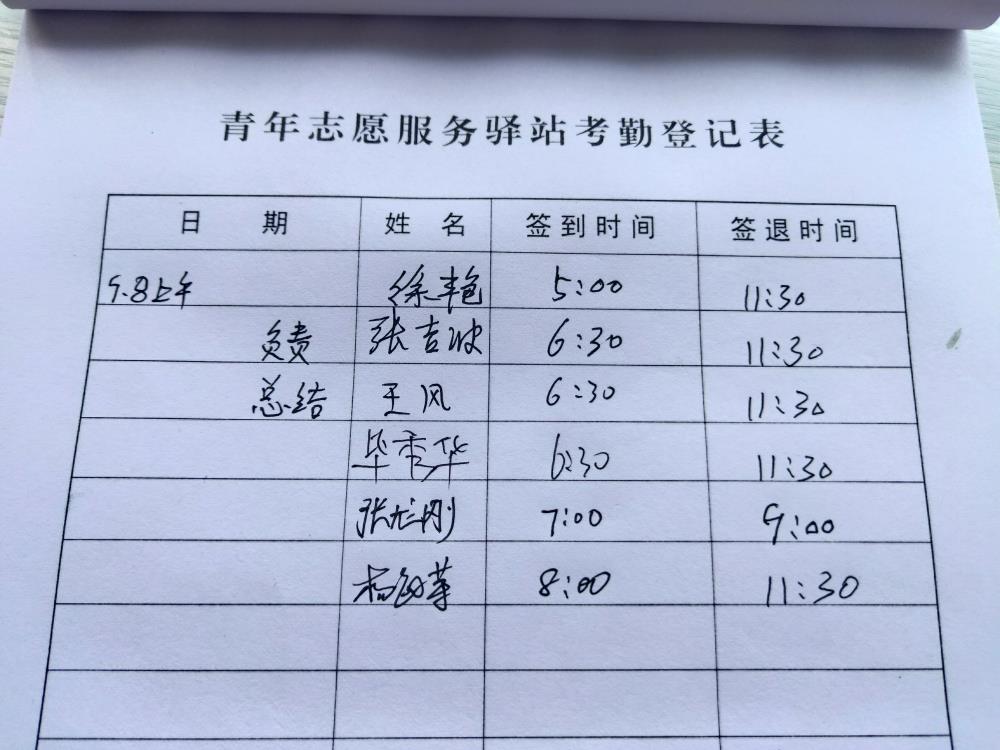 青年志愿服务驿站考勤登记表
日期 姓名 签到时间 签退时间
9.8上午 徐艳 5:00 11:30
负责 张吉波 6:30 11:30
总结 王风 6:30 11:30
毕秀华 6:30 11:30
张龙刚 7:00 9:00
杨 8:00 11:30